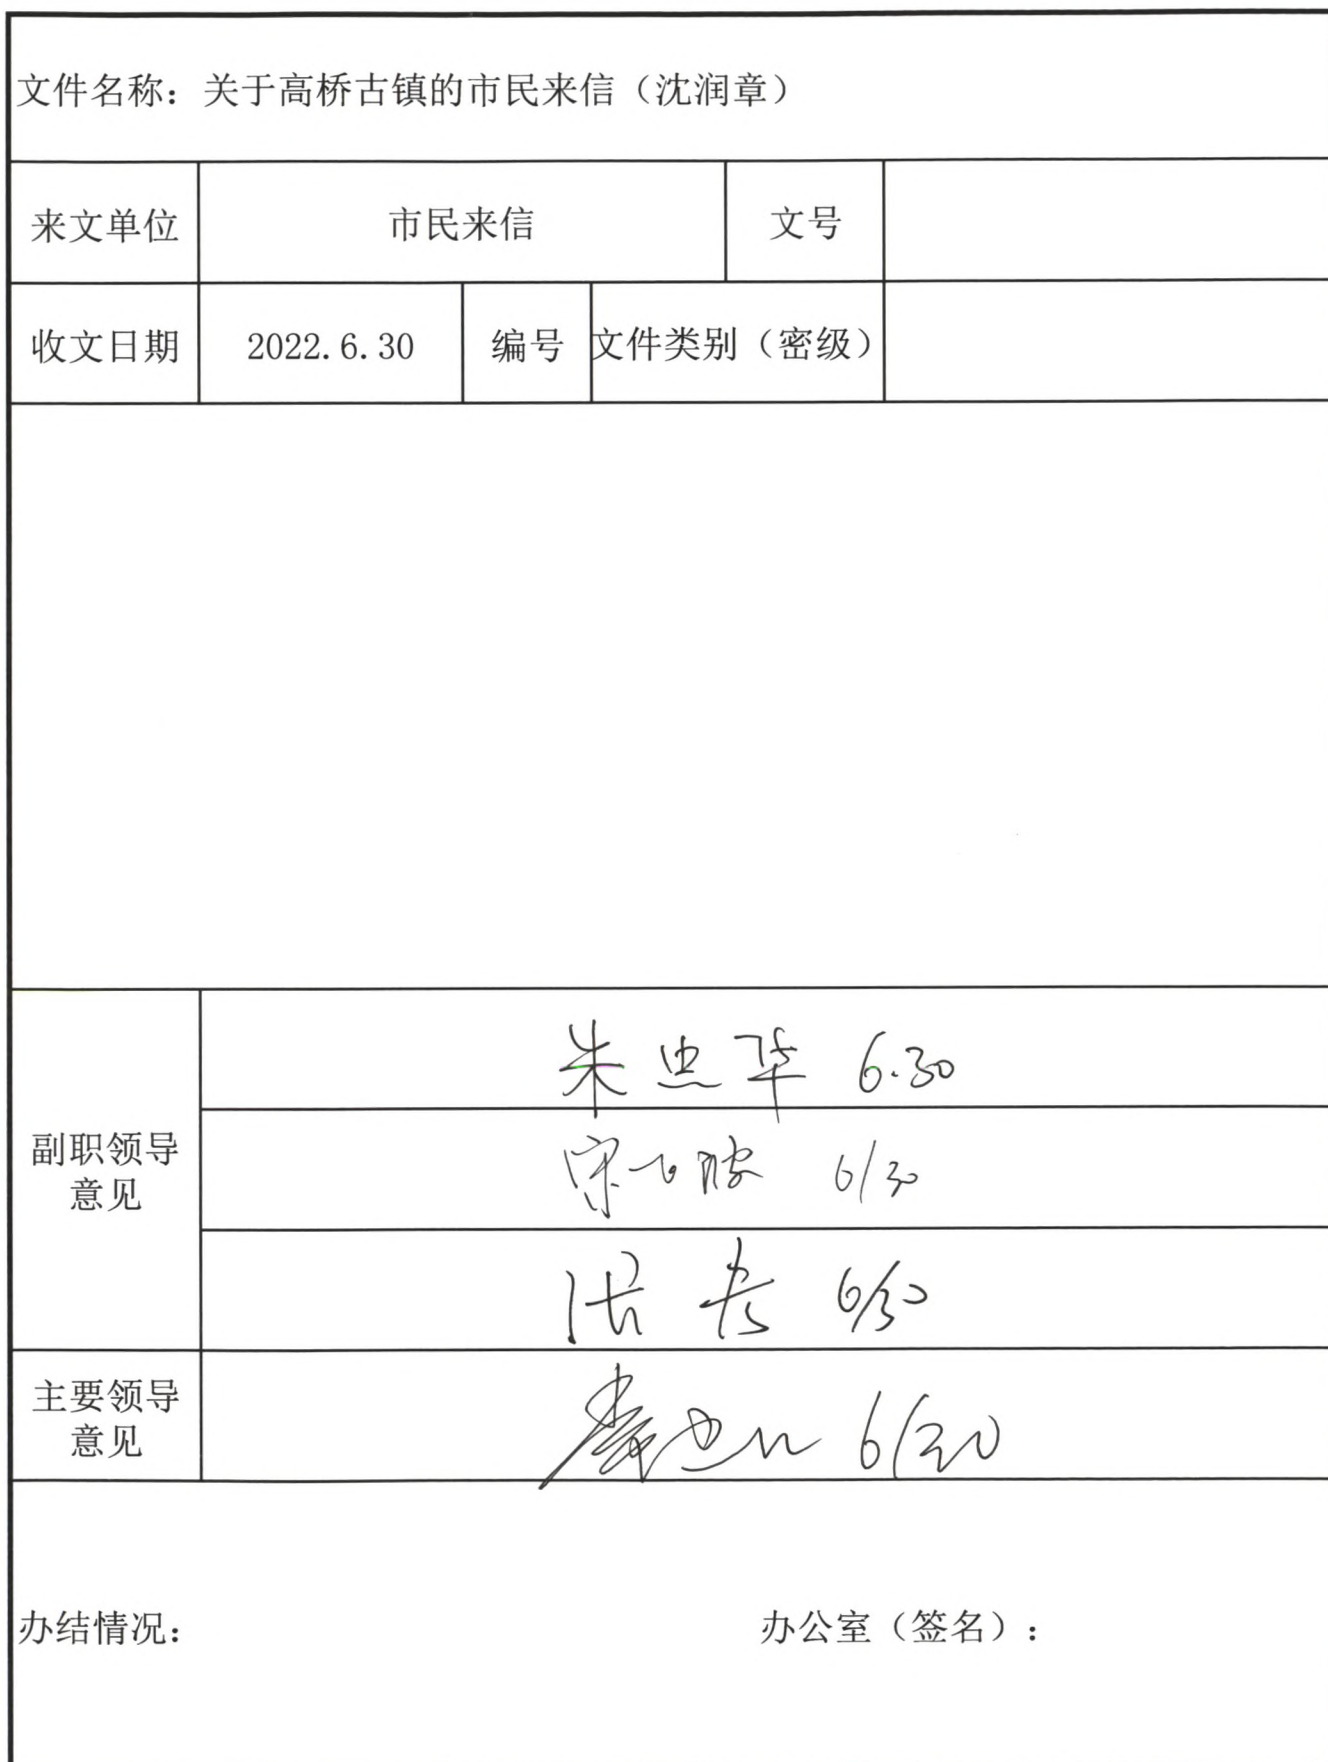 文件名称：关于高桥古镇的市民来信（沈润章）
来文单位 市民来信 文号
收文日期 2022.6.30 编号 文件类别（密级）
朱忠华 6.30
副职领导
意见
宋飞 6/30
6/30
主要领导
意见
6/30
办结情况： 办公室（签名）：